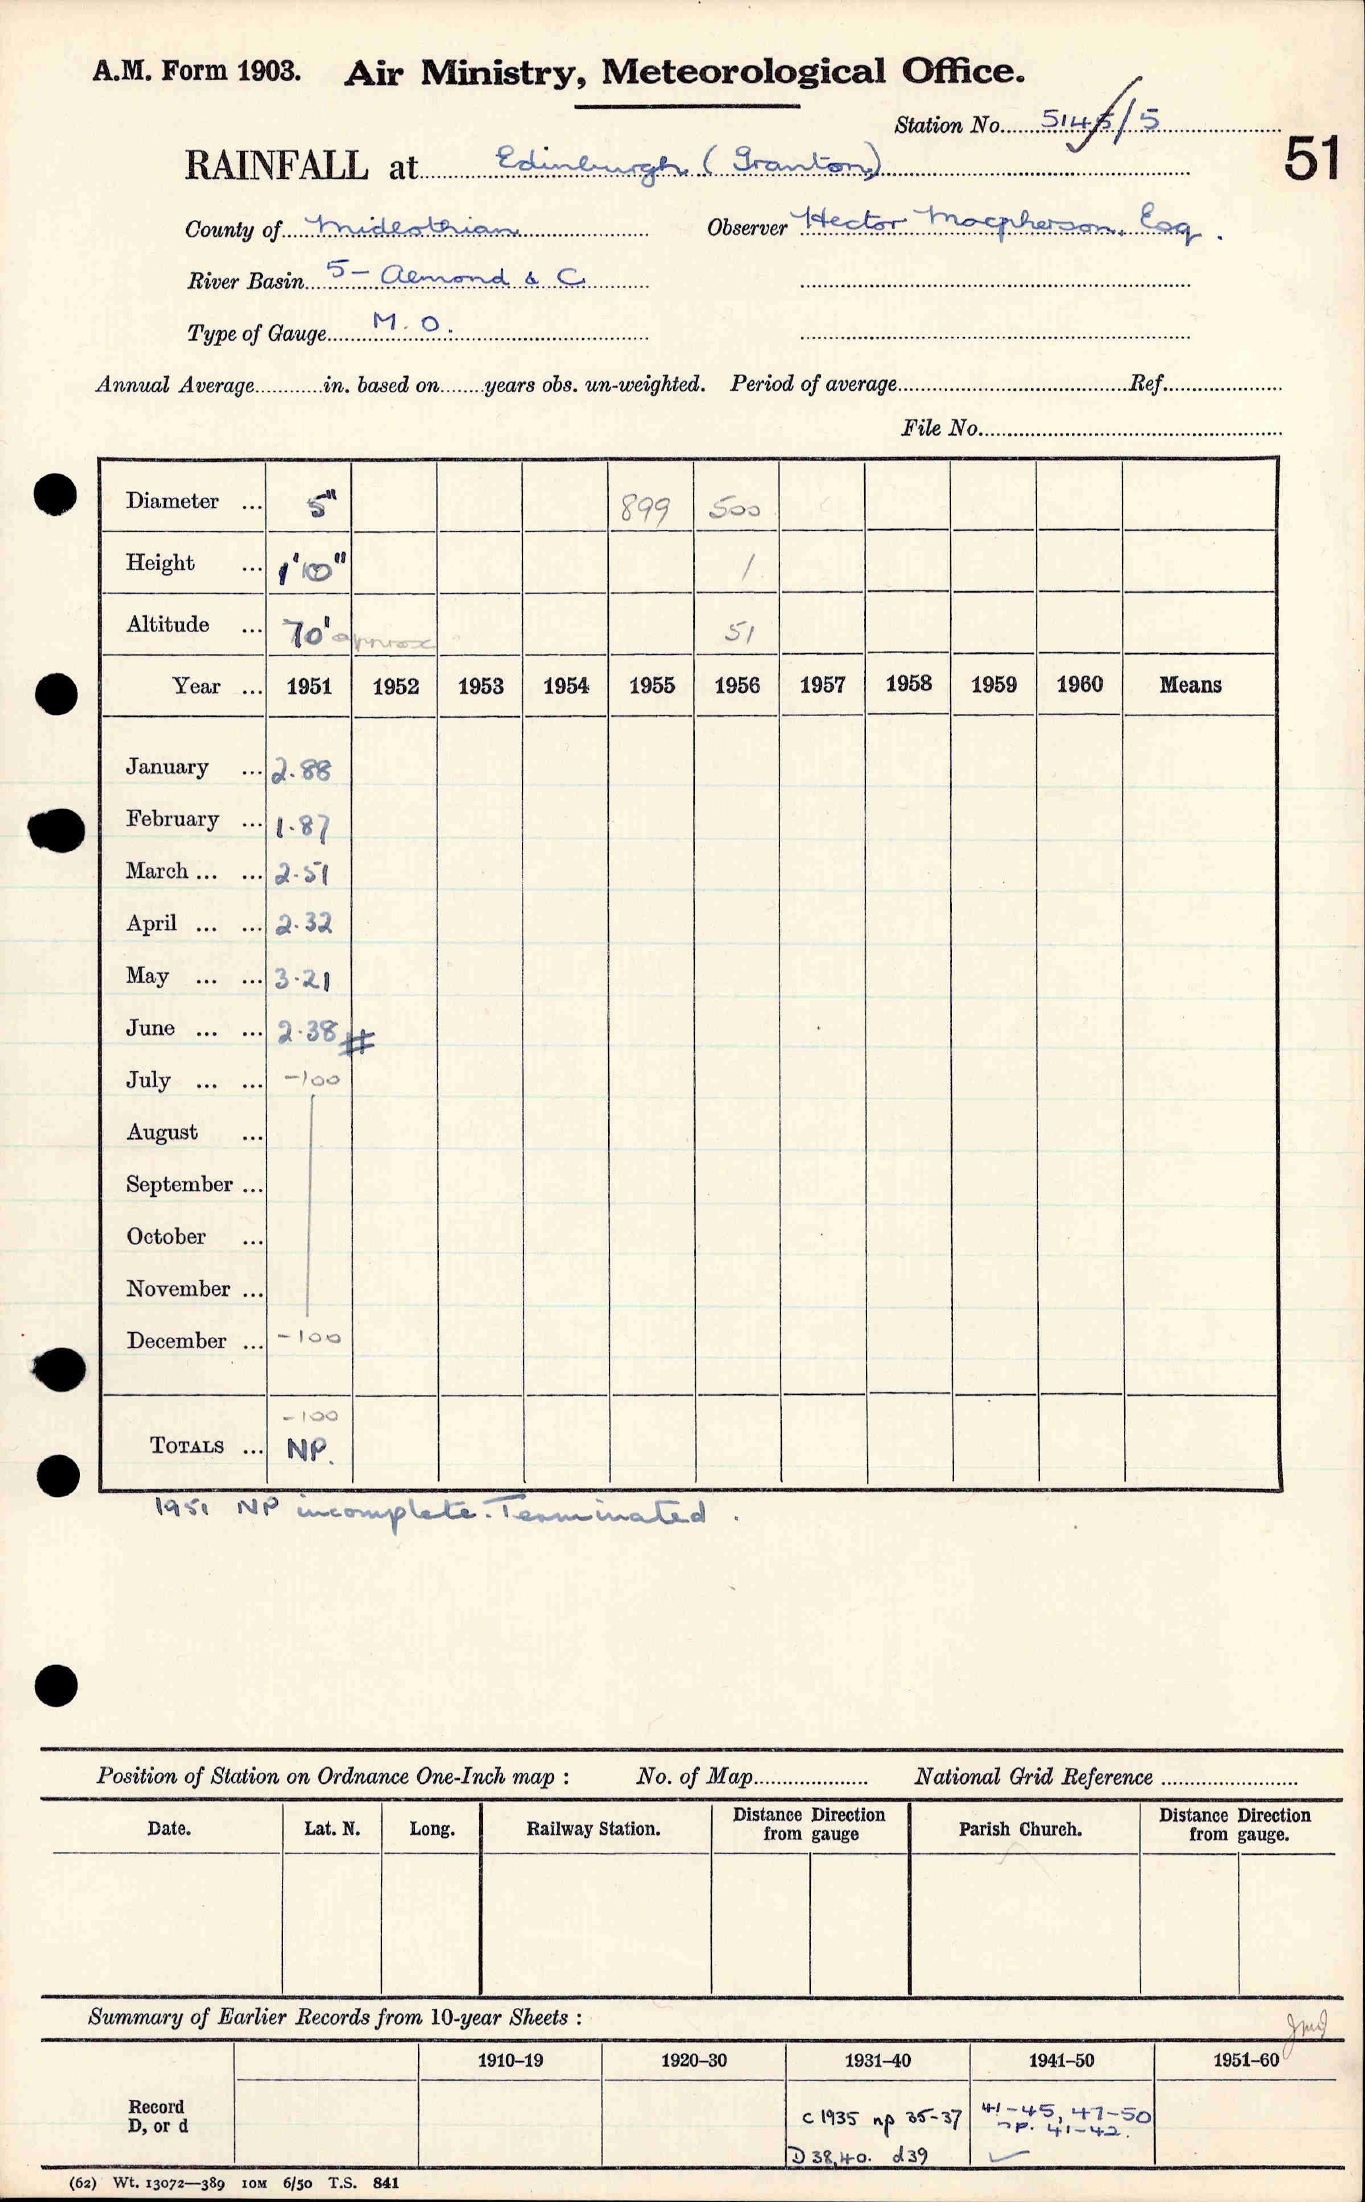 A.M. Form 1903. Air Ministry, Meteorological Office.
Station No. 5145/5
51
RAINFALL at Edinburgh (Granton)
County of Midlothian Observer Hector Macpherson, Esq.
River Basin 5 - Almond & C
Type of Gauge M. O.
Annual Average in. based on years obs. un-weighted. Period of average Ref.
File No.
Diameter ... 5" 899 500
Height ... 1'10" 1
Altitude ... 70' approx 51
Year ... 1951 1952 1953 1954 1955 1956 1957 1958 1959 1960 Means
January ... 2.88
February ... 1.87
March ... ... 2.51
April ... ... 2.32
May ... ... 3.21
June ... ... 2.38 #
July ... ... -100
August ...
September ...
October ...
November ...
December ... -100
-100
TOTALS ... NP.
1951 NP incomplete. Terminated.
Position of Station on Ordnance One-Inch map : No. of Map National Grid Reference
Date. Lat. N. Long. Railway Station. Distance from Direction gauge Parish Church. Distance from Direction gauge.
Summary of Earlier Records from 10-year Sheets :
1910-19 1920-30 1931-40 1941-50 1951-60
Record D, or d c 1935 np 35-37 41-45, 47-50
np. 41-42.
D 38,40. d39 ✓
(62) Wt. 13072—389 10M 6/50 T.S. 841